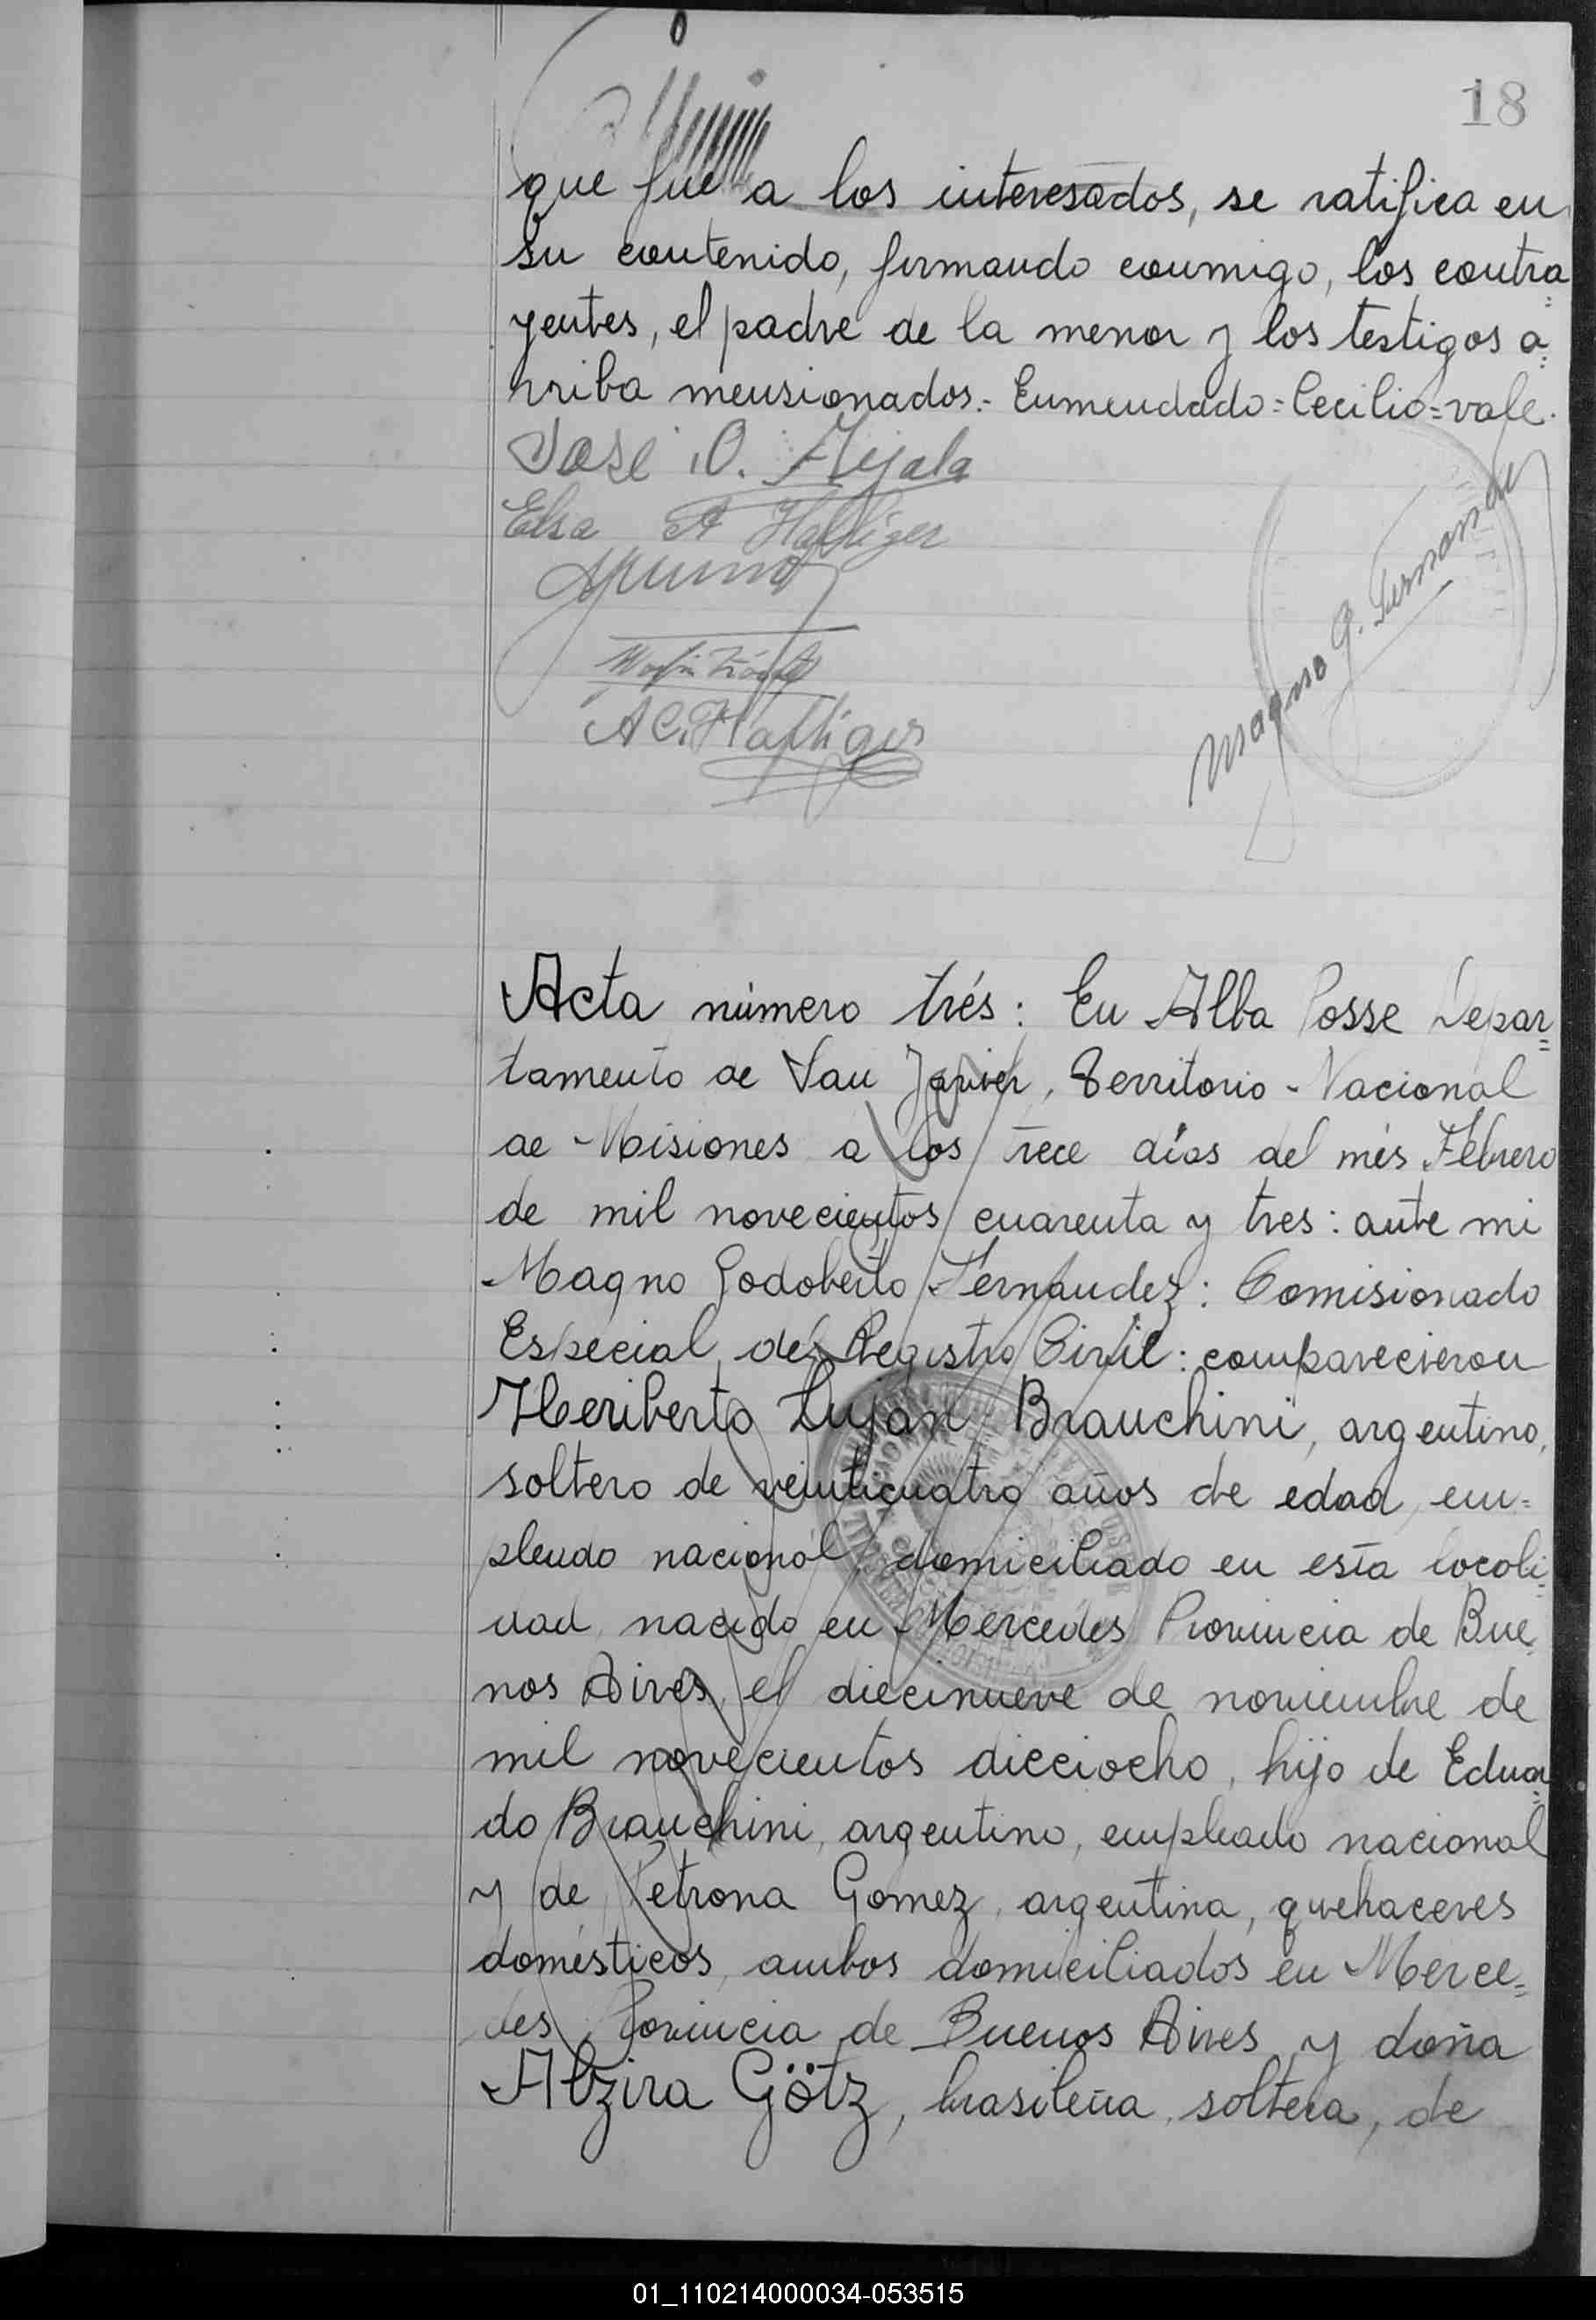 18
que fue a los interesados, se ratifica en
su contenido, firmando conmigo, los contra=
yentes, el padre de la menor y los testigos a=
rriba mensionados.- Enmendado=Cecilio=vale.
José O.
Elsa A Hafliger
A C. Hafliger
Magno G. Fernandez
Acta número trés: En Alba Posse Depar=
tamento de San Javier, Territorio Nacional
de Misiones a los trece días del més Febrero
de mil novecientos cuarenta y tres: ante mi
Magno Godoberto Fernandez: Comisionado
Especial del Registro Civil: comparecieron
Heriberto Luján Brauchini, argentino,
soltero de veinticuatro años de edad, em=
pleado nacional, domiciliado en esta locali=
dad, nacido en Mercedes Provincia de Bue
nos Aires, el diecinueve de noviembre de
mil novecientos dieciocho, hijo de Eduar=
do Brauchini, argentino, empleado nacional
y de Petrona Gomez, argentina, quehaceres
domésticos, ambos domiciliados en Merce=
des, Provincia de Buenos Aires, y doña
Alzira Götz, brasileña, soltera, de
01_110214000034-053515